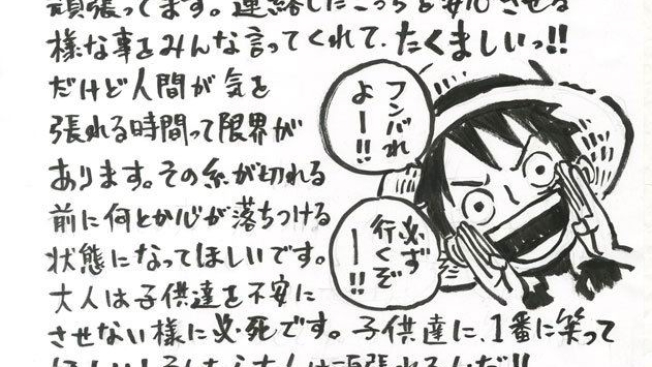 頑張ってます。連絡したこっちを安心させる
様な事をみんな言ってくれて、たくましいっ!!
だけど人間が気を
張れる時間って限界が
あります。その糸が切れる
前に何とか心が落ちつける
状態になってほしいです。
大人は子供達を不安に
させない様に必死です。子供達に、1番に笑って
ほしい!そしたら大人は頑張れるんだ!!
フンバれ
よー!!
必ず
行くぞ
ー!!